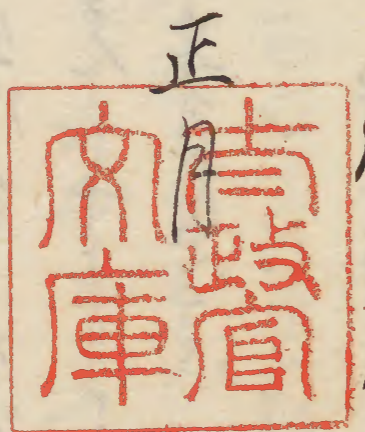 正月
太政官
文庫